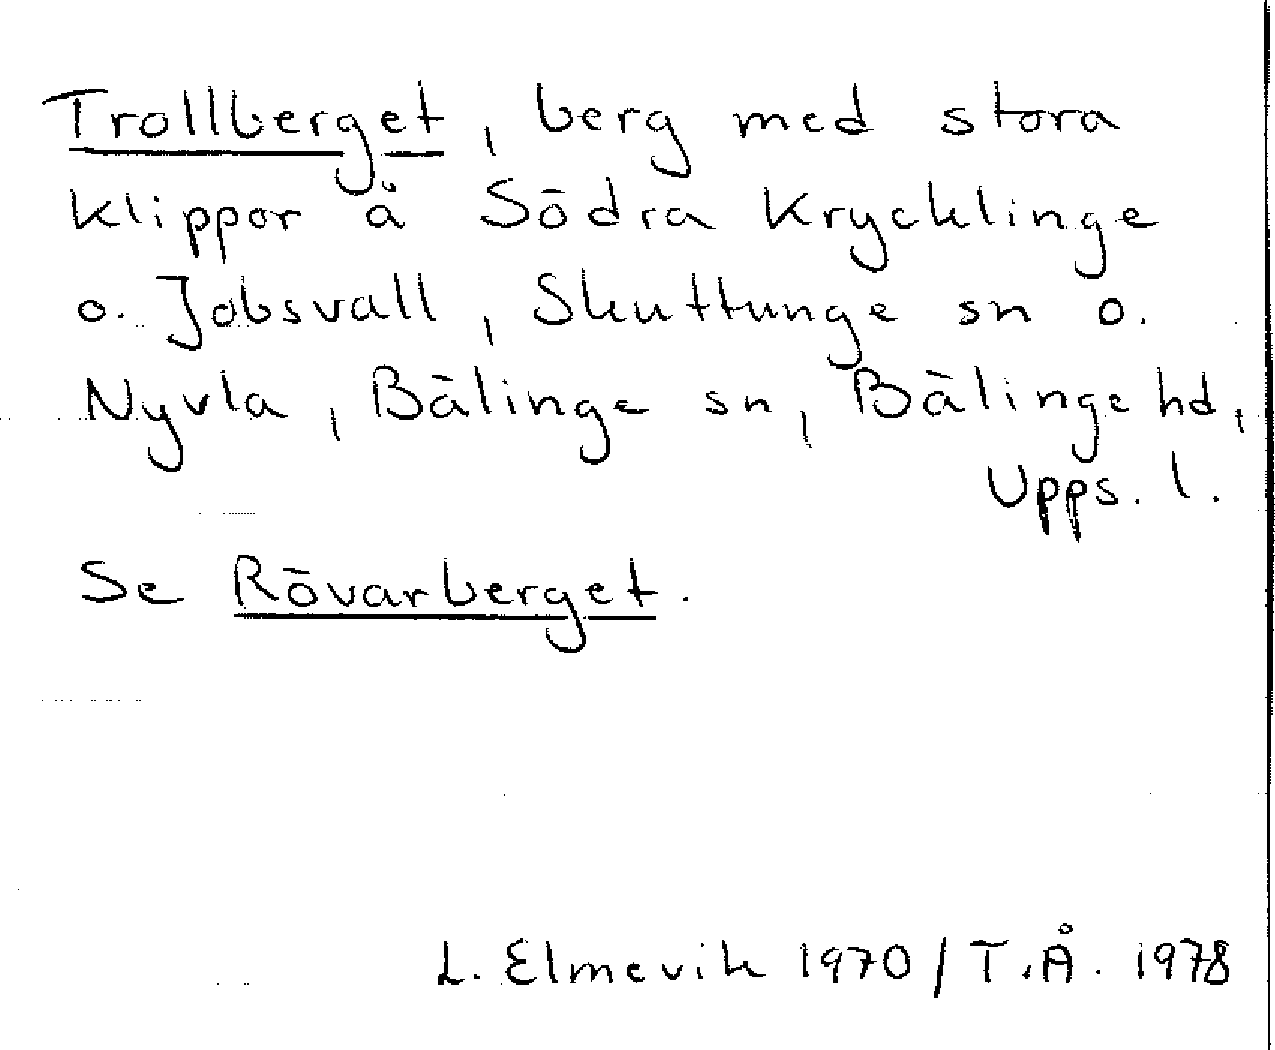 Trollberget, berg med stora
klippor å Södra Krycklinge
o. Jobsvall, Skuttunge sn o.
Nyvla, Bälinge sn, Bälinge hd,
Upps. l.
Se Rövarberget.
L. Elmevik 1970 / T.Å. 1978